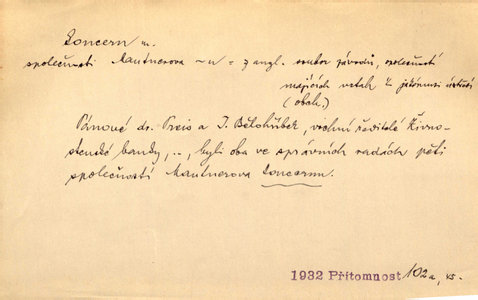 Concern m.
společnosti Mautnerova ~u = z angl. soubor závodů, společností
majících vztah k jakémusi ústředí
(obch.)
Pánové dr. Preis a J. Bělohříbek, vrchní ředitelé Živno-
stenské banky, .., byli oba ve správních radách pěti
společností Mautnerova Concernu.
1932 Přítomnost 102a, 45.